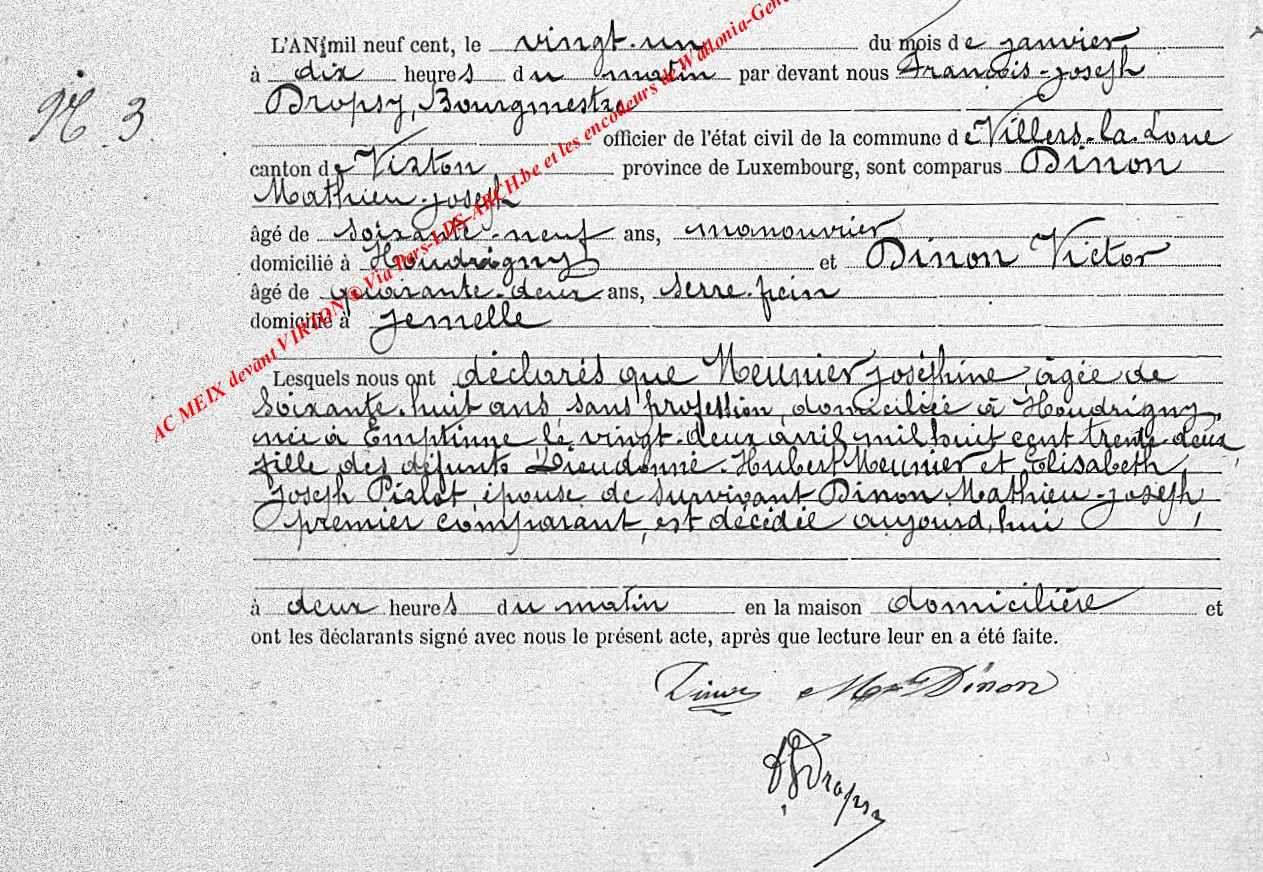 L'AN mil neuf cent, le vingt-un du mois de janvier,
à dix heures du matin par devant nous François-Joseph
Dropsy, Bourgmestre
N. 3.
officier de l'état civil de la commune de Villers-la-Loue
canton de Virton province de Luxembourg, sont comparus Dinon
Mathieu-Joseph
âgé de soixante-neuf ans, manouvrier
domicilié à Houdrigny et Dinon Victor
âgé de quarante-deux ans, serre-frein
domicilié à Jemelle
Lesquels nous ont déclarés que Meunier Joséphine, âgée de
soixante-huit ans sans profession, domiciliée à Houdrigny,
née à Emptinne le vingt-deux avril mil huit cent trente-deux,
fille des défunts Dieudonné-Hubert Meunier et Elisabeth
Joseph Pialot, épouse de survivant Dinon Mathieu-Joseph,
premier comparant, est décédée aujourd'hui
à deux heures du matin en la maison domicilière et
ont les déclarants signé avec nous le présent acte, après que lecture leur en a été faite.
Dinon
Dinon
Dropsy
AC MEIX devant VIRTON © Via Pars-LDS-ARCH.be et les encodeurs de Wallonia-Gen